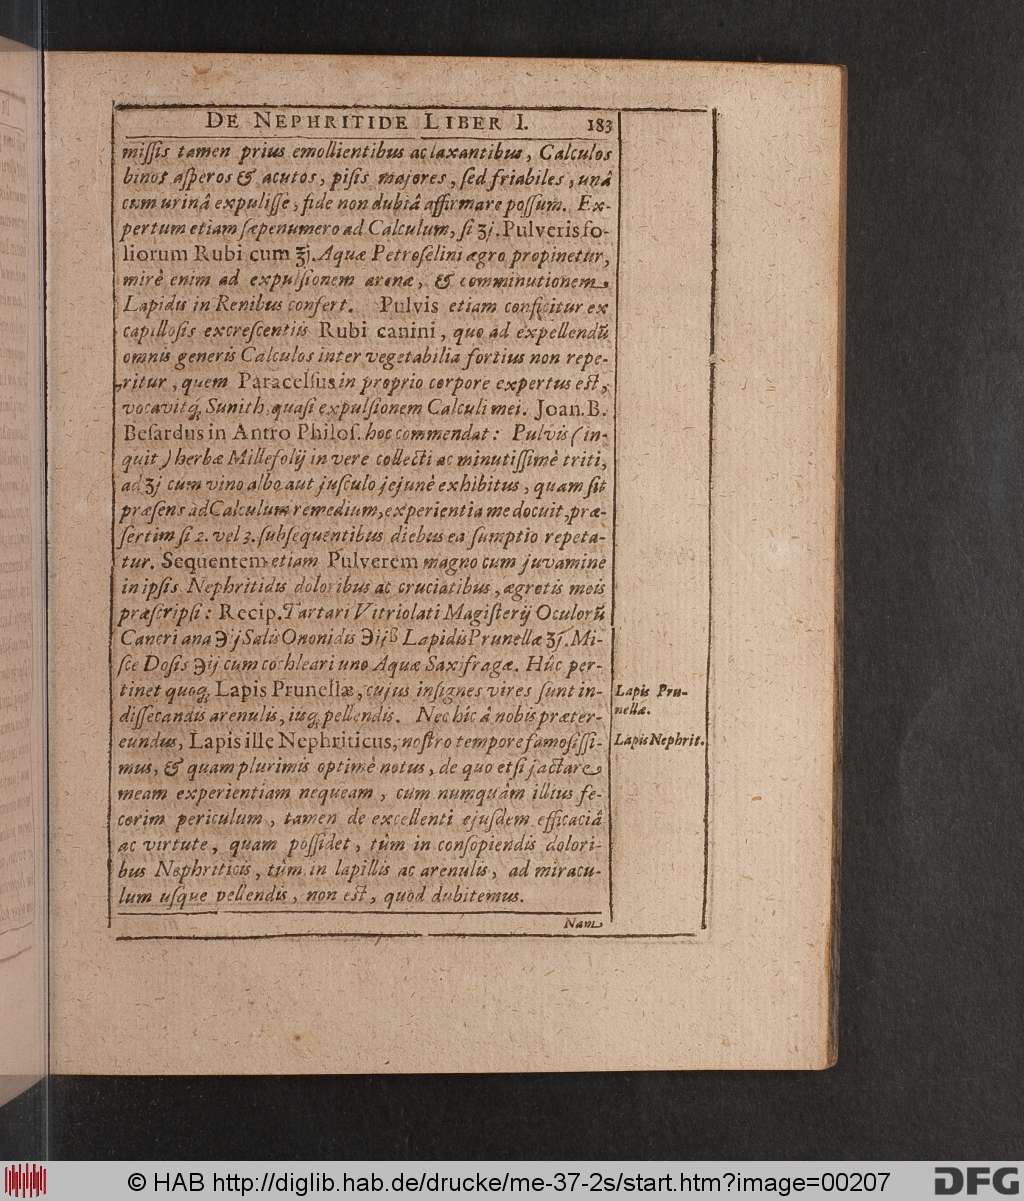 DE NEPHRITIDE LIBER I. 183
missis tamen prius emollientibus ac laxantibus, Calculos
binos asperos & acutos, pisis majores, sed friabiles, unâ
cum urinâ expulisse, fide non dubiâ affirmare possum. Ex-
pertum etiam sæpenumero ad Calculum, si ʒj. Pulveris fo-
liorum Rubi cum ℥j. Aquæ Petroselini ægro propinetur,
mirè enim ad expulsionem arenæ, & comminutionem
Lapidis in Renibus confert. Pulvis etiam conficitur ex
capillosis excrescentiis Rubi canini, quo ad expellendũ
omnis generis Calculos inter vegetabilia fortius non repe-
ritur, quem Paracelsus in proprio corpore expertus est,
vocavitq; Sunith, quasi expulsionem Calculi mei. Joan. B.
Besardus in Antro Philos. hoc commendat: Pulvis (in-
quit) herbæ Millefolij in vere collecti ac minutissimè triti,
ad ʒj cum vino albo aut jusculo jejunè exhibitus, quam sit
præsens ad Calculum remedium, experientia me docuit, præ-
sertim si 2. vel 3. subsequentibus diebus ea sumptio repeta-
tur. Sequentem etiam Pulverem magno cum juvamine
in ipsis Nephritidis doloribus ac cruciatibus, ægrotis meis
præscripsi: Recip. Tartari Vitriolati Magisterij Oculorũ
Cancri ana ℈j Salis Ononidis ℈ijß Lapidis Prunellæ ʒj. Mi-
sce Dosis ℈ij cum cochleari uno Aquæ Saxifragæ. Hûc per-
tinet quoq; Lapis Prunellæ, cujus insignes vires sunt in-
dissecandis arenulis, iisq; pellendis. Nec hîc â nobis præter-
eundus, Lapis ille Nephriticus, nostro tempore famosissi-
mus, & quam plurimis optimè notus, de quo etsi jactare
meam experientiam nequeam, cum numquàm illius fe-
cerim periculum, tamen de excellenti ejusdem efficaciâ
ac virtute, quam possidet, tùm in consopiendis dolori-
bus Nephriticis, tùm in lapillis ac arenulis, ad miracu-
lum usque pellendis, non est, quod dubitemus.
Nam
Lapis Pru-
nellæ.
Lapis Nephrit.
© HAB http://diglib.hab.de/drucke/me-37-2s/start.htm?image=00207
DFG